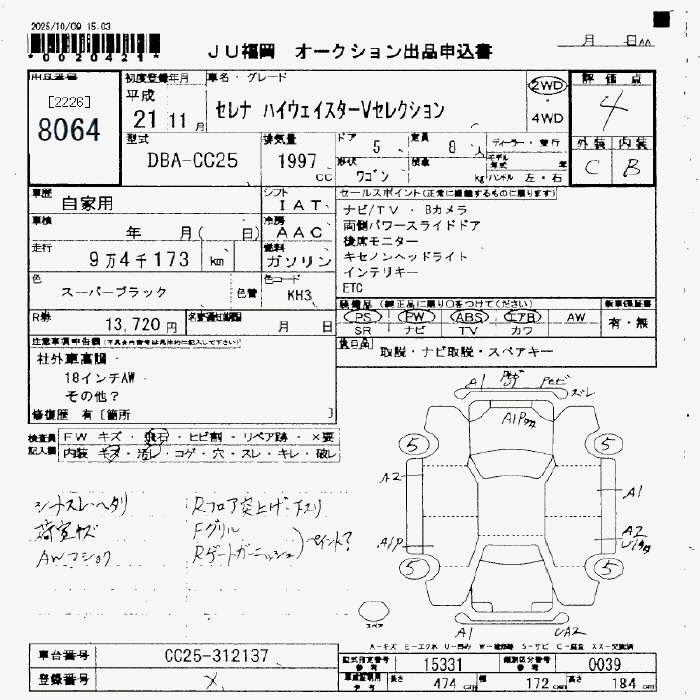 2025/10/09 15.03
*0020421*
JU福岡 オークション出品申込書
月 日
出品番号
[2226]
8064
初度登録年月
平成
21 11 月
車名・グレード
セレナ ハイウェイスターVセレクション
2WD
4WD
評価点
4
外装 内装
C B
型式
DBA-CC25
排気量
1997 cc
ドア
5
定員
8 人
形状
ワゴン
積載
kg
ディーラー・並行
モデル年式 年
ハンドル 左・右
車歴
自家用
シフト
IAT
車検
年 月( 日)
冷房
AAC
走行
9万4千173 km
燃料
ガソリン
色
スーパーブラック
色替
色コード
KH3
R券
13,720 円
名変期限
月 日
セールスポイント(正常に機能するものに限ります)
ナビ/TV ・ Bカメラ
両側パワースライドドア
後席モニター
キセノンヘッドライト
インテリキー
ETC
装備品 (純正品に限り○をつけてください)
PS PW ABS エアB AW
SR ナビ TV カワ
新車保証書
有・無
後日品
取説・ナビ取説・スペアキー
注意事項申告欄
社外車高調
18インチAW
その他?
修復歴 有 [箇所 ]
検査員記入欄
FW キズ・飛石・ヒビ割・リペア跡・×要
内装 キズ・汚レ・コゲ・穴・スレ・キレ・破レ
シートスレ・ヘタリ
荷室キズ
AWフショク
Rフロア突上げ・下スリ
Fグリル
Rゲートガーニッシュ
ペイント?
A1
スレ
A1Pタカ
5
5
A2
A1
A1P
A2
5
5
スペア
A1
UA2
A-キズ E-エクボ U-凹み W-補修跡 S-サビ C-腐食 XX-交換済
車台番号
CC25-312137
登録番号
型式指定番号 参考
15331
類別区分番号 参考
0039
長さ 474 cm
幅 172 cm
高さ 184 cm